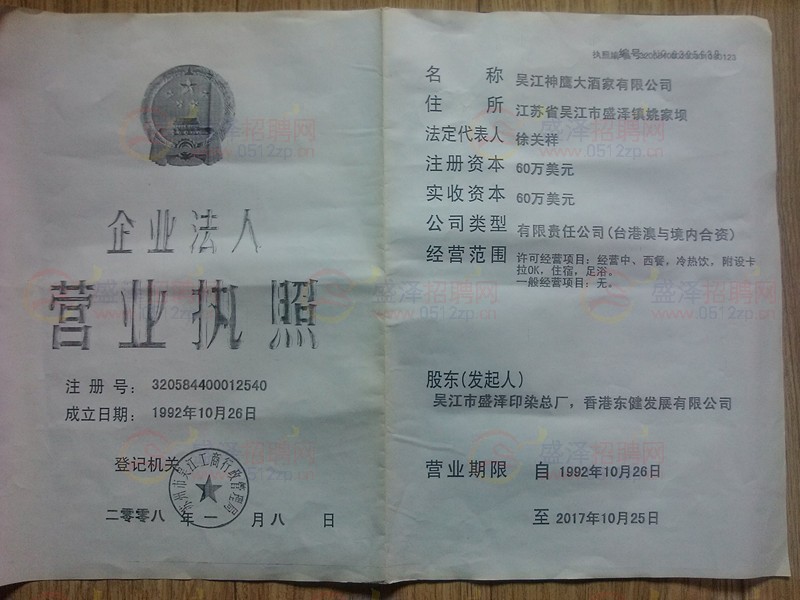 企业法人
营业执照
注 册 号: 320584400012540
成立日期: 1992年10月26日
登记机关
苏州市吴江工商行政管理局
二零零八 年 一 月 八 日
名 称 吴江神鹰大酒家有限公司
住 所 江苏省吴江市盛泽镇姚家坝
法定代表人 徐关祥
注册资本 60万美元
实收资本 60万美元
公司类型 有限责任公司(台港澳与境内合资)
经营范围 许可经营项目: 经营中、西餐, 冷热饮, 附设卡
拉OK, 住宿, 足浴。
一般经营项目: 无。
股东(发起人)
吴江市盛泽印染总厂, 香港东健发展有限公司
营业期限 自 1992年10月26日
至 2017年10月25日
盛泽招聘网
www.0512zp.cn